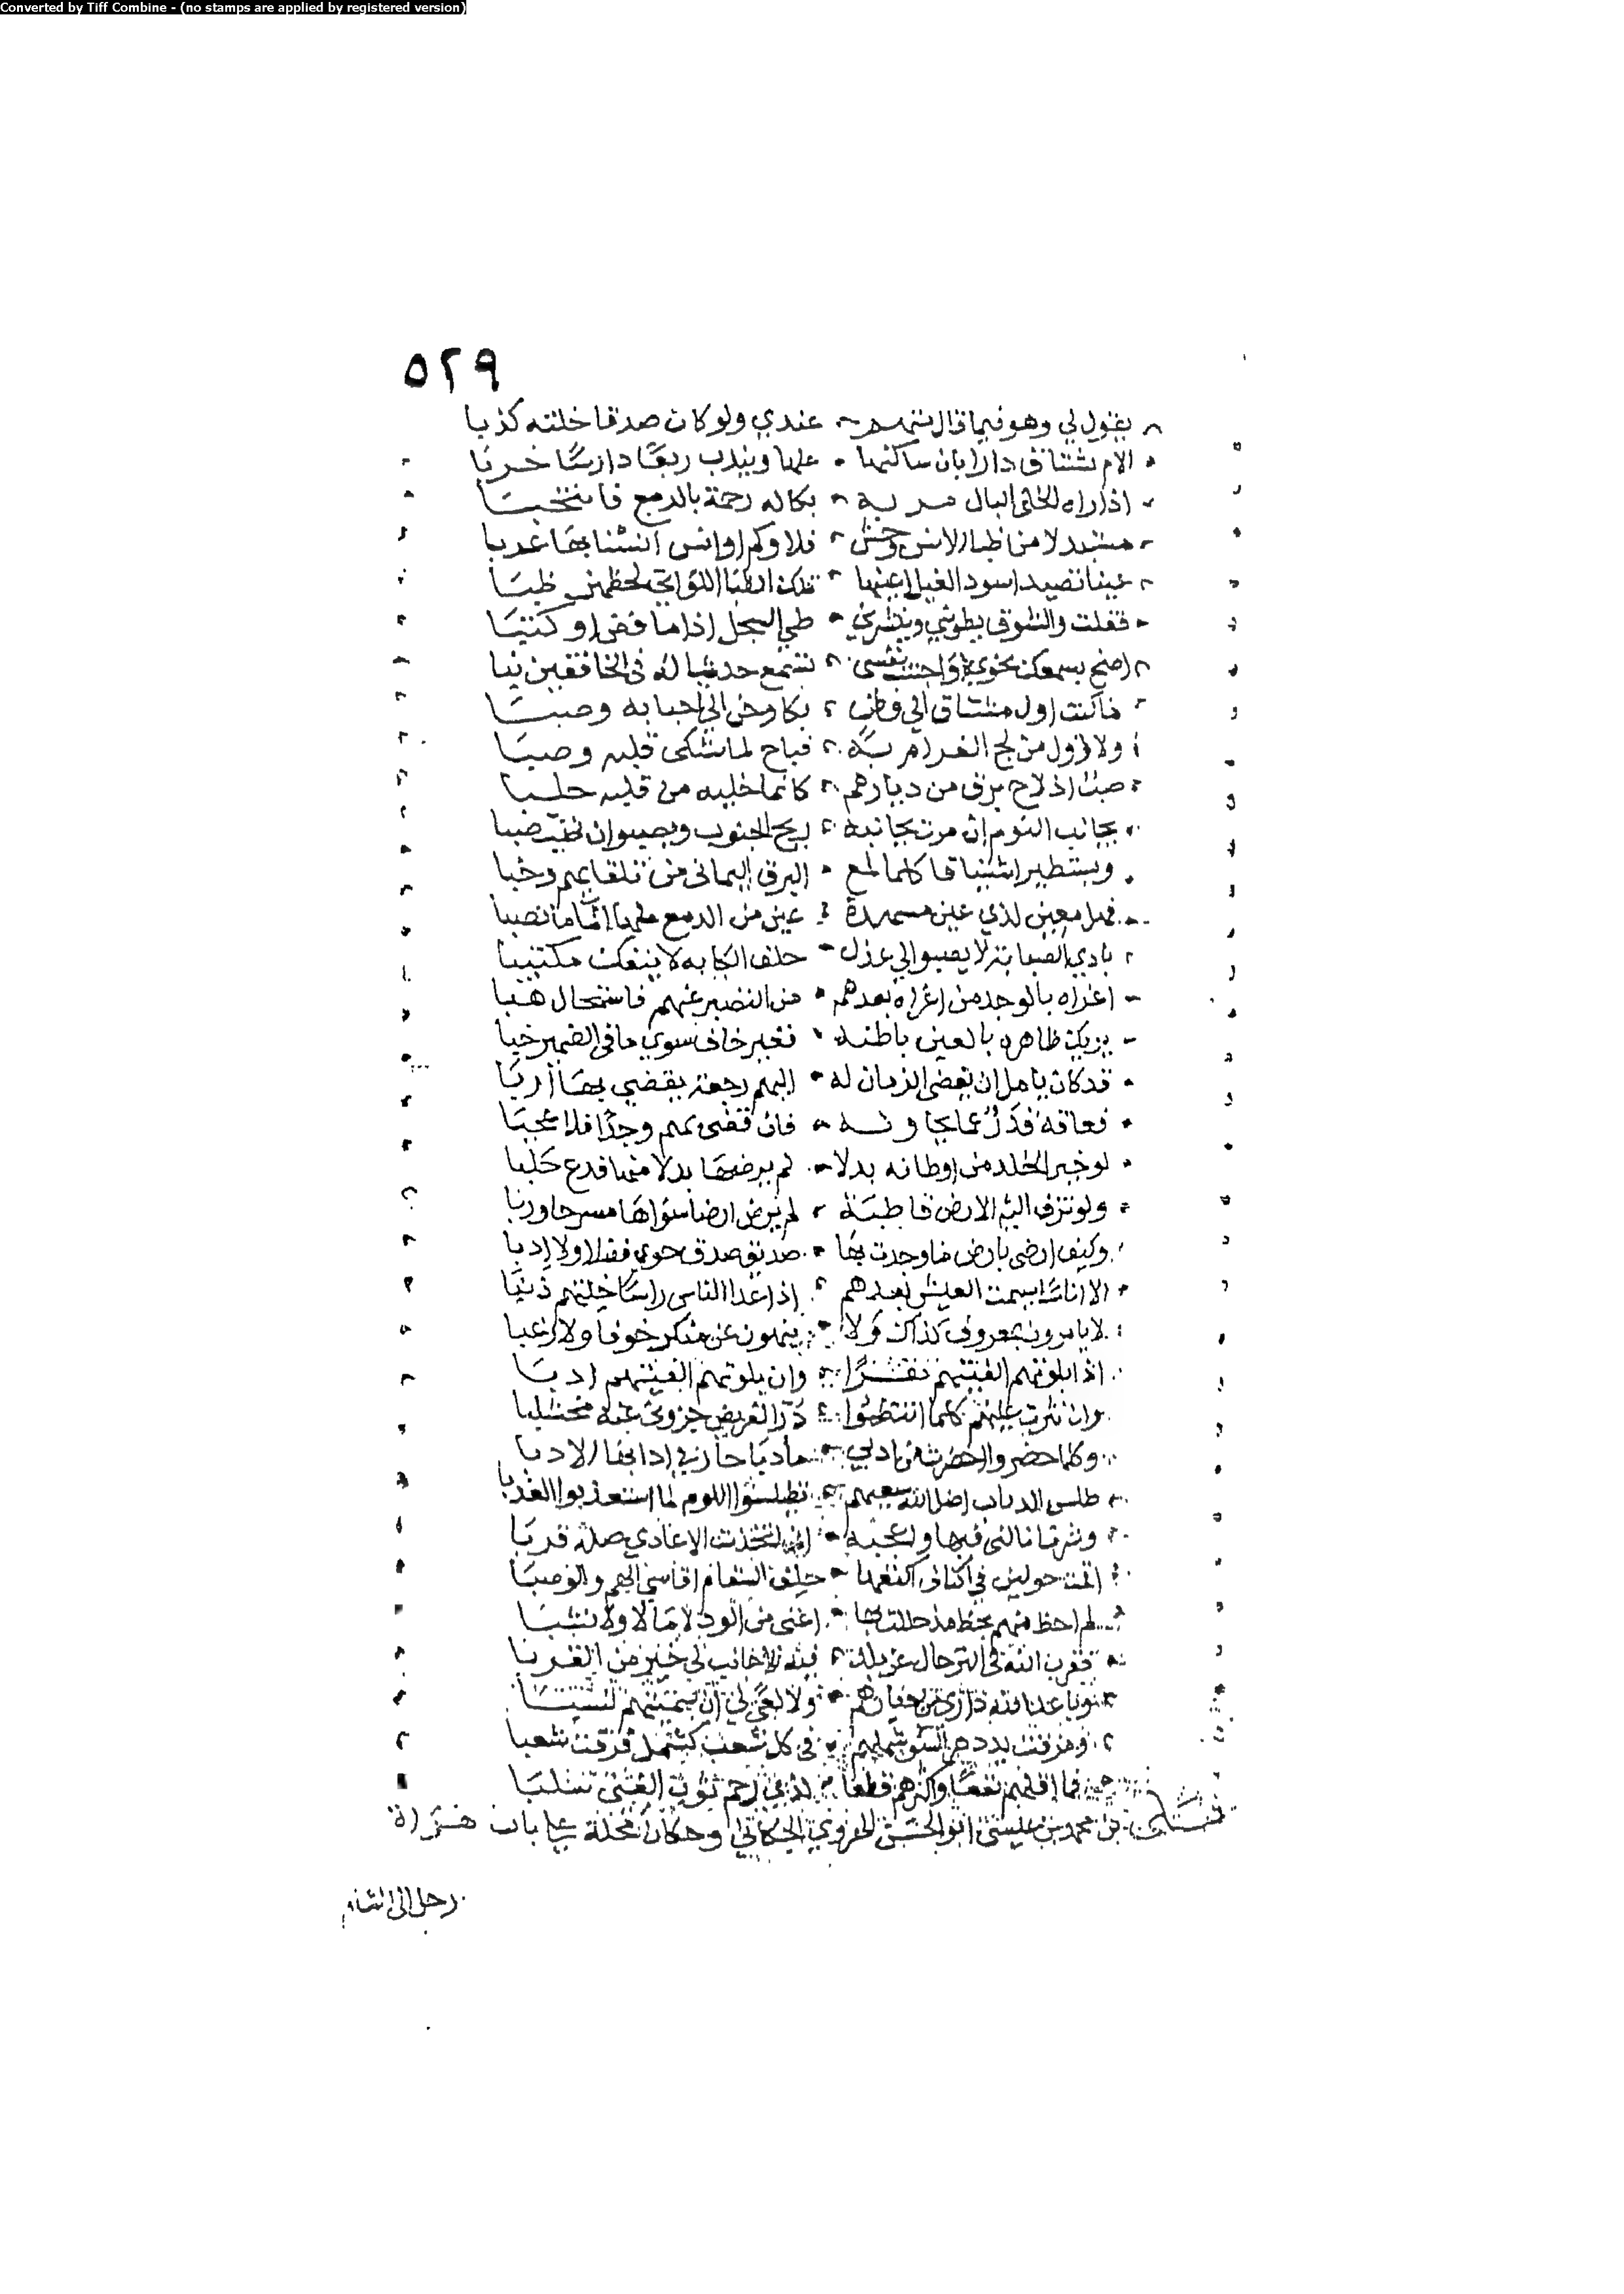 Converted by Tiff Combine - (no stamps are applied by registered version)
٥٢٩
يقول لي وهو فيما قال متهم عندي ولو كان صدقا خلته كذبا
الام تشتاق دارا بان ساكنها عنها ويندب ربعا دارسا خربا
اذا راه الخلي البال مر به بكا له رحمة بالدمع فانتحبا
مستبدلا من ظبا الانس وحش فلا وكم اوانس انسنا بها عربا
عينا تصيد اسود الغيل اعينها تلك الظبا اللواتي لحظهن ظبا
فقلت والشوق يطويني وينشرني طي السجل اذا ما فض او كتبا
اصخ بسمعك نحوي تستمع حديثا له في الخافقين نبا
ما كنت اول مشتاق الي وطن بكا وحن الي احبابه وصبا
ولا اول من لج الغرام به فباح لما شكى قلبه وصبا
صب اذ لاح برق من ديارهم كانما خلبه من قلبه خلبا
يجانب النوم ان مرت بجانبه ريح الجنوب ويصبو ان تهب صبا
ويستطير اشتياقا كلما لمع البرق اليماني من تلقايهم وخبا
فهل معين لذي عين مسهدة عين من الدمع ماوها ما نضبا
بادي الصبابة لا يصبو الي عذل حلف الكابه لا ينفك مكتئبا
اغراه بالوجد من اغراه بعدهم من التصبر عنهم فاستحال هبا
يريك ظاهره بالعين باطنه فغير خاف سوي ما في الضمير خبا
قد كان يامل ان يقضى الزمان له اليهم رجعة يقضي بها اربا
فعاقه قدر عما يحاوله فان قضى بهم وجدا فلا عجبا
لو خير الخلد من اوطانه بدلا لم يرضها بدلا منها فدع حلبا
ولو تزف اليه الارض قاطبة لم يرض ارضا سواها مسرحا وربا
وكيف ارضى بارض ما وجدت بها صديق صدق حوي فضلا ولا ادبا
الا اناسا سيمت العيش بعدهم اذا غدا الناس راسا خلتهم ذنبا
لا يامرون بمعروف كذاك ولا ينهون عن منكر خوفا ولا رغبا
اذا بلوتهم الفيتهم
وان نثرت عليهم كلما انتظموا در القريض
وكلما حضروا احضرت من ادبي
طلس الذباب اضل الله سعيهم اللوم لما استعذبوا العذبا
وشر ما نالني فيها واعجبه اني اتخذت الاعادي صلة قربا
اقمت حولين في اكناف حلف السقام اقاسي الهم والوصبا
لم احظ منهم بحظ مذ حللت بها اغنى من الود لا مالا ولا نشبا
فقرب الله في الترحال لي خير من الغربا
وباعد الله داري من ديارهم ولا لي ان يممتهم
ومزقت يد دهر السو شملهم في كل شعب كشمل فرقت شعبا
فما اقلهم نفعا واكثرهم قطعا لذي رحم ثوب الغنى سلبا
بن محمد بن عيسى ابو الحسن الهروي الحكاني وحكان محلة على باب هراة
رحل الى الشام